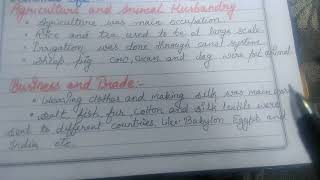 Agriculture and Animal Husbandry
• Agriculture was main occupation.
• Rice and tea used to be at large scale.
• Irrigation was done through canal system.
• Sheep, pig, cow, oxen and dog were pet animal.
Business and Trade:-
• Weaving clothes and making silk was main
• Salt, fish, fur, cotton and silk textile were
sent to different countries like Babylon, Egypt and
India etc.